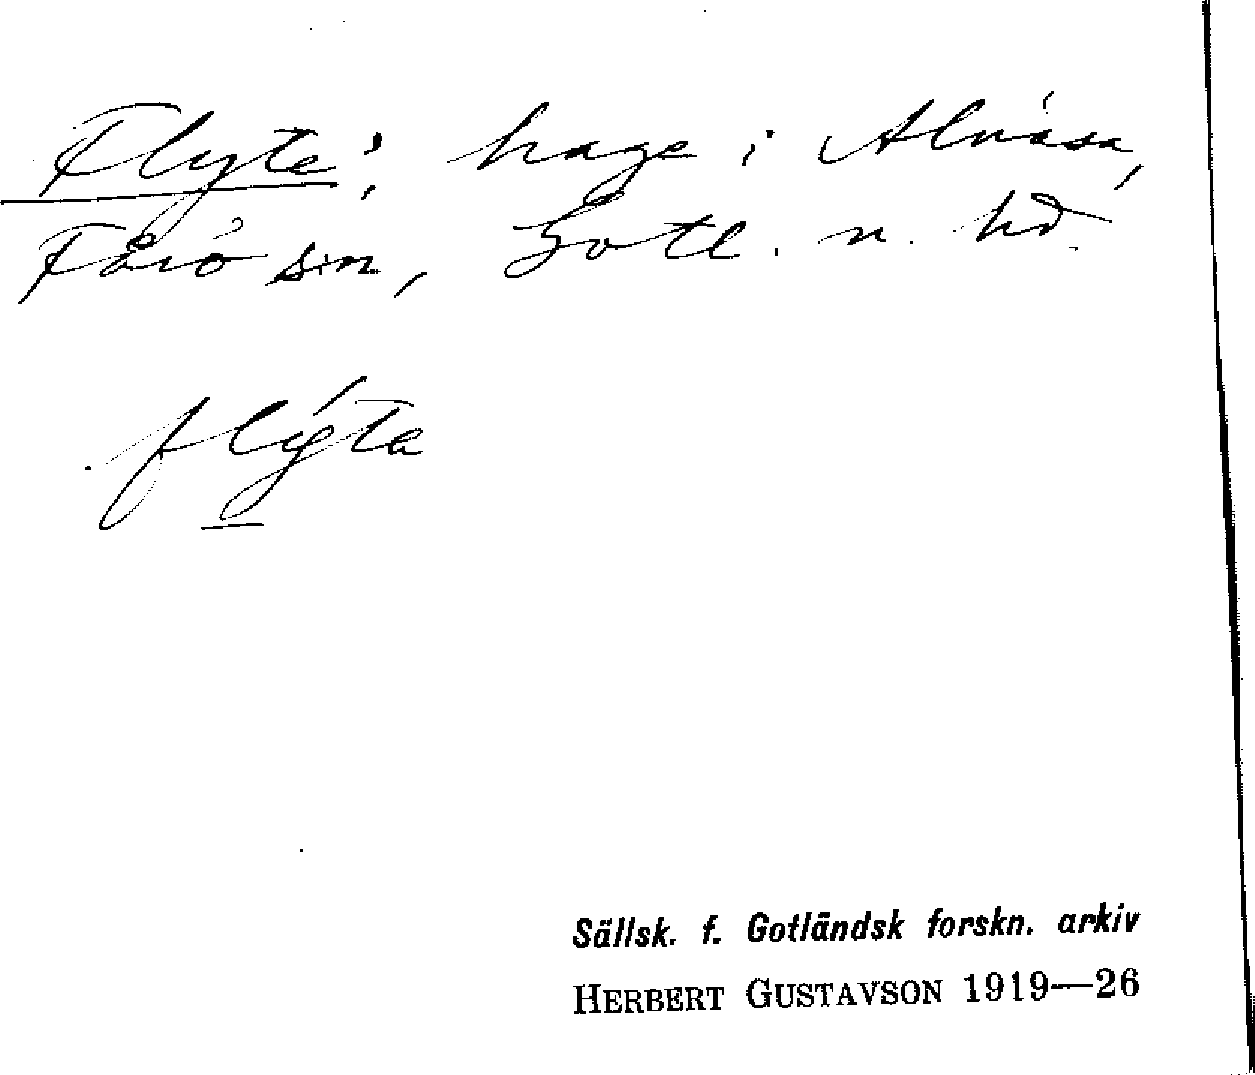 Flyte; hage i Alnäsa,
Fårö s:n, Gotl. n. hd.
flýta
Sällsk. f. Gotländsk forskn. arkiv
HERBERT GUSTAVSON 1919—26